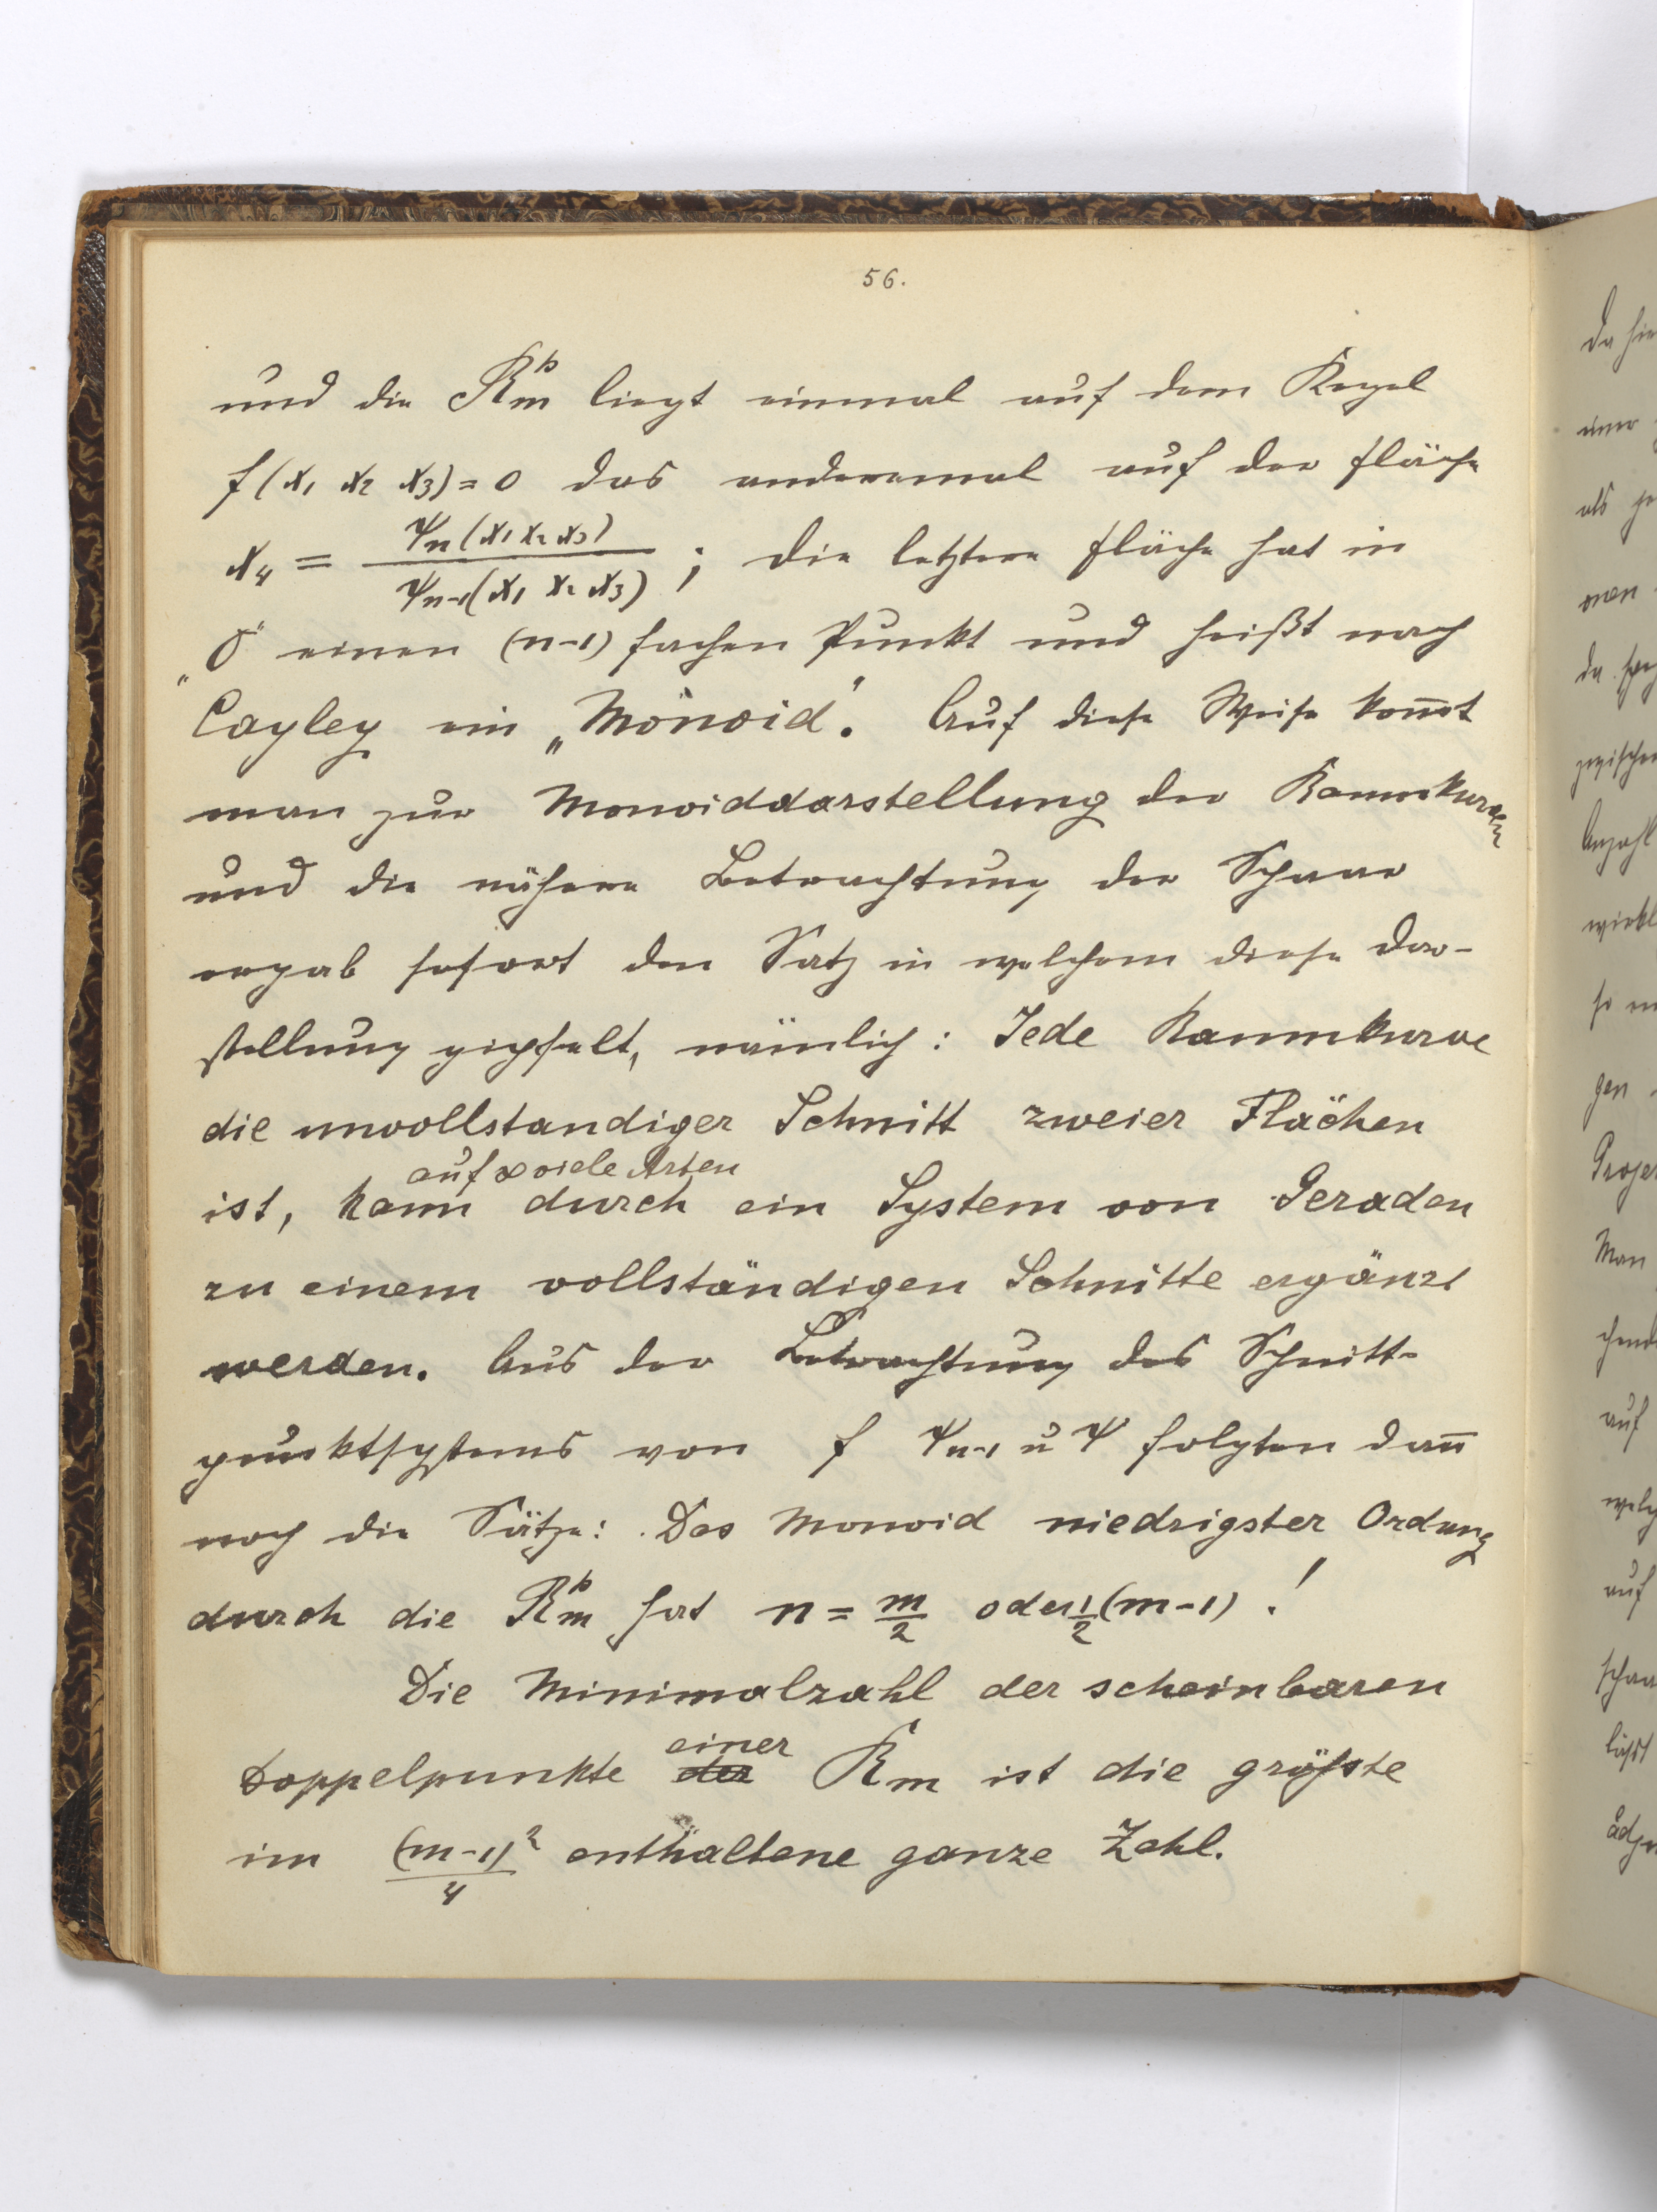 56.
und die R_m^p liegt einmal auf dem Kegel
f(x₁ x₂ x₃) = 0 das anderemal auf der Fläche
x₄ = ψ_n(x₁ x₂ x₃) / ψ_{n-1}(x₁ x₂ x₃) ; die letztere Fläche hat in
„O“ einen (n-1) fachen Punkt und heißt nach
Cayley ein „Monoid“. Auf diese Weise kom̅t
man zur Monoiddarstellung der Raumkurven
und die nähere Betrachtung der Schaar
ergab sofort den Satz in welchem diese Dar-
stellung gipfelt, nämlich: Jede Raumkurve
die unvollstandiger Schnitt zweier Flächen
auf ∞ viele Arten
ist, kann durch ein System von Geraden
zu einem vollständigen Schnitte ergänzt
werden. Aus der Betrachtung des Schnitt-
punktsystems von f ψ_{n-1} u ψ folgten dan̅
noch die Sätze: Das Monoid niedrigster Ordung
durch die R_m^p hat n = m/2 oder 1/2 (m-1) !
Die Minimalzahl der scheinbaren
einer
Doppelpunkte der R_m ist die größte
im (m-1)²/4 enthaltene ganze Zahl.